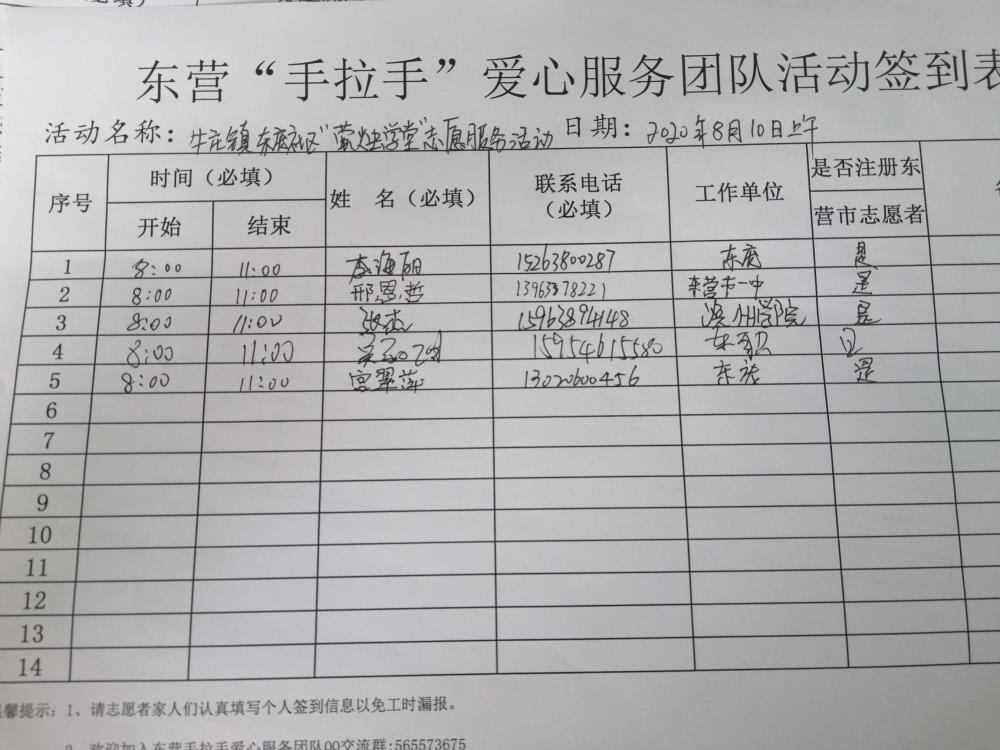 东营“手拉手”爱心服务团队活动签到表
活动名称：牛庄镇东府社区“萤火虫学堂”志愿服务活动 日期：2020年8月10日上午
序号 时间（必填） 姓 名（必填） 联系电话（必填） 工作单位 是否注册东营市志愿者
开始 结束
1 8:00 11:00 李海丽 15263800287 是
2 8:00 11:00 邢恩哲 13963378221 东营市一中 是
3 8:00 11:00 张杰 15963894148 滨州学院 是
4 8:00 11:00 15954615580
5 8:00 11:00 宫翠萍 13020600456 是
6
7
8
9
10
11
12
13
14
馨提示：1、请志愿者家人们认真填写个人签到信息以免工时漏报。
2、欢迎加入东营手拉手爱心服务团队QQ交流群：565573675